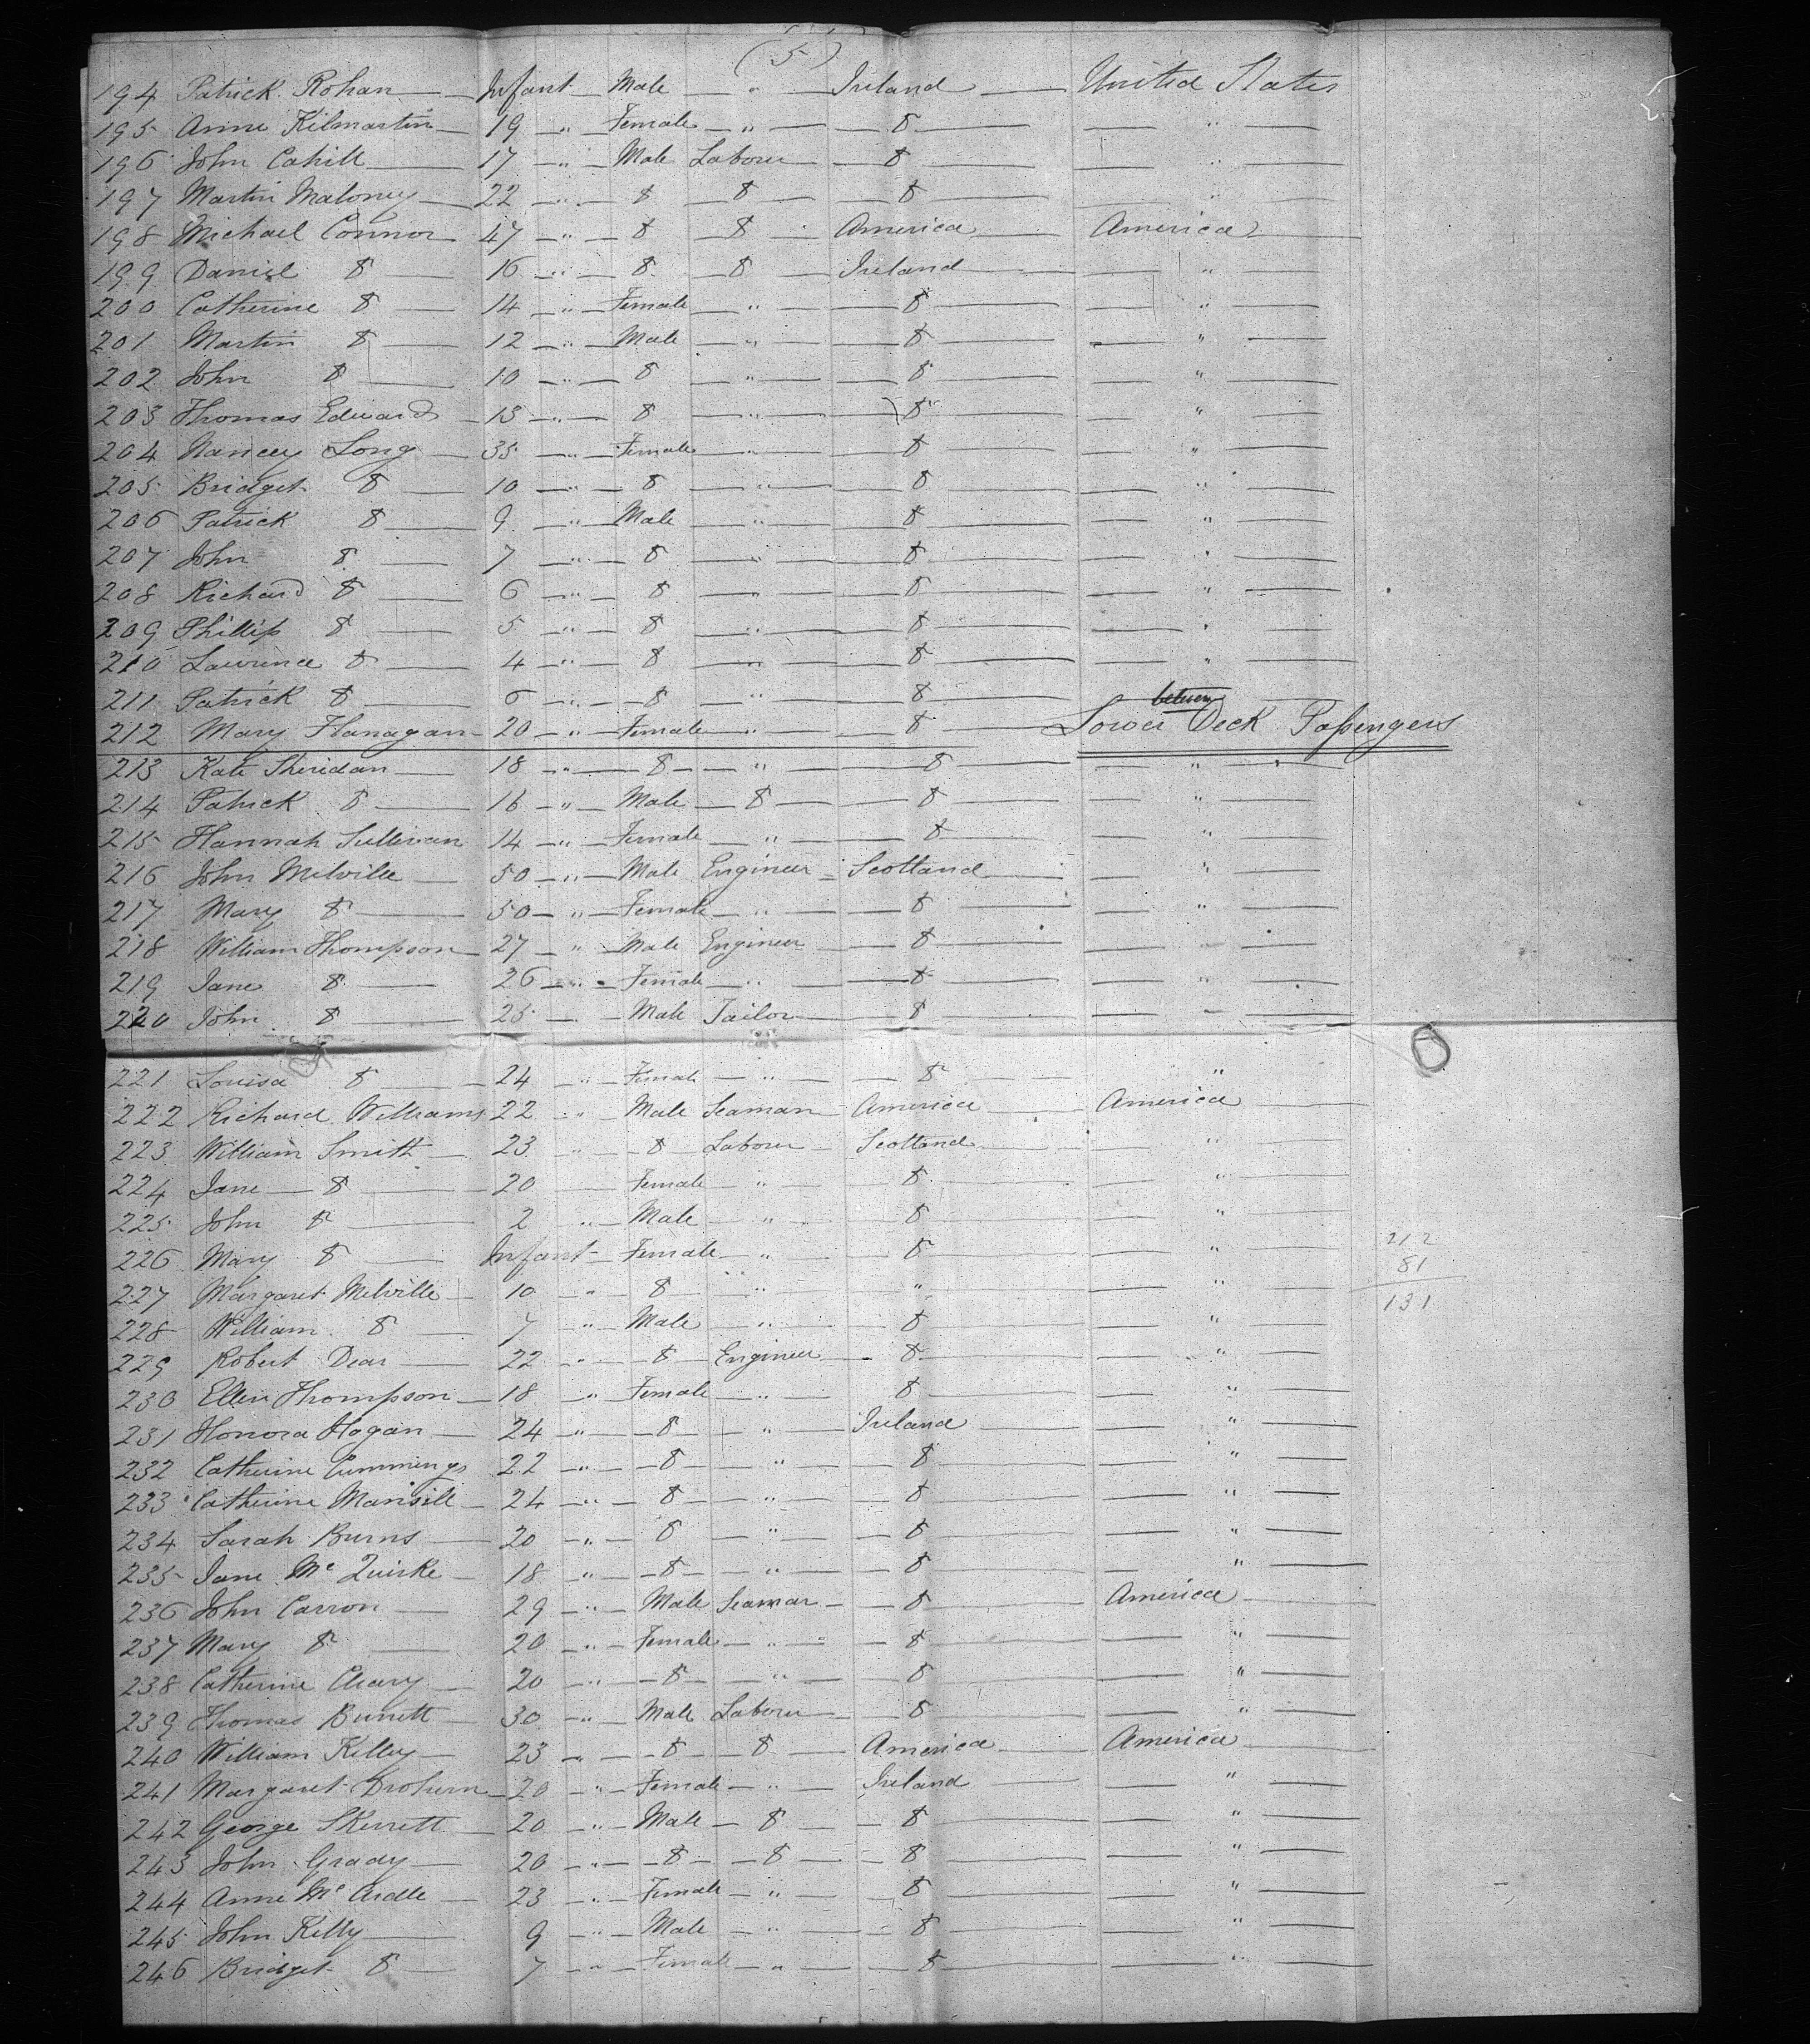 (5)
194 Patrick Rohan — Infant — Male — " — Ireland — United States
195 Anne Kilmartin — 19 — " — Female — " — do — "
196 John Cahill — 17 — " — Male Labour — do — "
197 Martin Maloney — 22 — " — do — do — do — "
198 Michael Connor — 47 — " — do — do — America — America
199 Daniel do — 16 — " — do — do — Ireland — "
200 Catherine do — 14 — " — Female — " — do — "
201 Martin do — 12 — " — Male — " — do — "
202 John do — 10 — " — do — " — do — "
203 Thomas Edward — 13 — " — do — " — do — "
204 Nancey Long — 35 — " — Female — " — do — "
205 Bridget do — 10 — " — do — " — do — "
206 Patrick do — 9 — " — Male — " — do — "
207 John do — 7 — " — do — " — do — "
208 Richard do — 6 — " — do — " — do — "
209 Phillip do — 5 — " — do — " — do — "
210 Lawrence do — 4 — " — do — " — do — "
211 Patrick do — 6 — " — do — " — do
between
212 Mary Flanagan — 20 — " — Female — " — do — Lower Deck Passengers
213 Kate Sheridan — 18 — " — do — " — do — "
214 Patrick do — 16 — " — Male — do — do — "
215 Hannah Sullivan 14 — " — Female — " — do — "
216 John Melville — 50 — " — Male Engineer — Scotland — "
217 Mary do — 50 — " — Female — " — do — "
218 William Thompson — 27 — " — Male Engineer — do — "
219 Jane do — 26 — " — Female — " — do — "
220 John do — 25 — Male Tailor — do — "
221 Louisa do — 24 — " — Female — " — do — "
222 Richard Williams 22 — " — Male Seaman — America — America
223 William Smith — 23 — " — do Labour — Scotland — "
224 Jane — do — 20 — Female — " — do — "
225 John do — 2 — " — Male — " — do — "
226 Mary do — Infant — Female — " — do — "
212
81
131
227 Margaret Melville — 10 — " — do — " — " — "
228 William do — 7 — " — Male — " — do — "
229 Robert Dear — 22 — " — do — Engineer — do — "
230 Ellen Thompson — 18 — " — Female — " — do — "
231 Honora Hogan — 24 — " — do — " — Ireland — "
232 Catherine Cummings 22 — " — do — " — do — "
233 Catherine Mansill — 24 — " — do — " — do — "
234 Sarah Burns — 20 — " — do — " — do — "
235 Jane Mc Quirke — 18 — " — do — " — do — "
236 John Carron — 29 — " — Male Seaman — do — America
237 Mary do — 20 — " — Female — " — do — "
238 Catherine Cleary — 20 — " — do — " — do — "
239 Thomas Burrett — 30 — " — Male Labour — do — "
240 William Killey — 23 — " — do — do — America — America
241 Margaret — 20 — " — Female — " — Ireland — "
242 George Skerrett — 20 — " — Male — do — do — "
243 John Grady — 20 — " — do — do — do — "
244 Anne Mc Ardle — 23 — " — Female — " — do — "
245 John Kelly — 9 — " — Male — " — do — "
246 Bridget do — 7 — " — Female — " — do — "